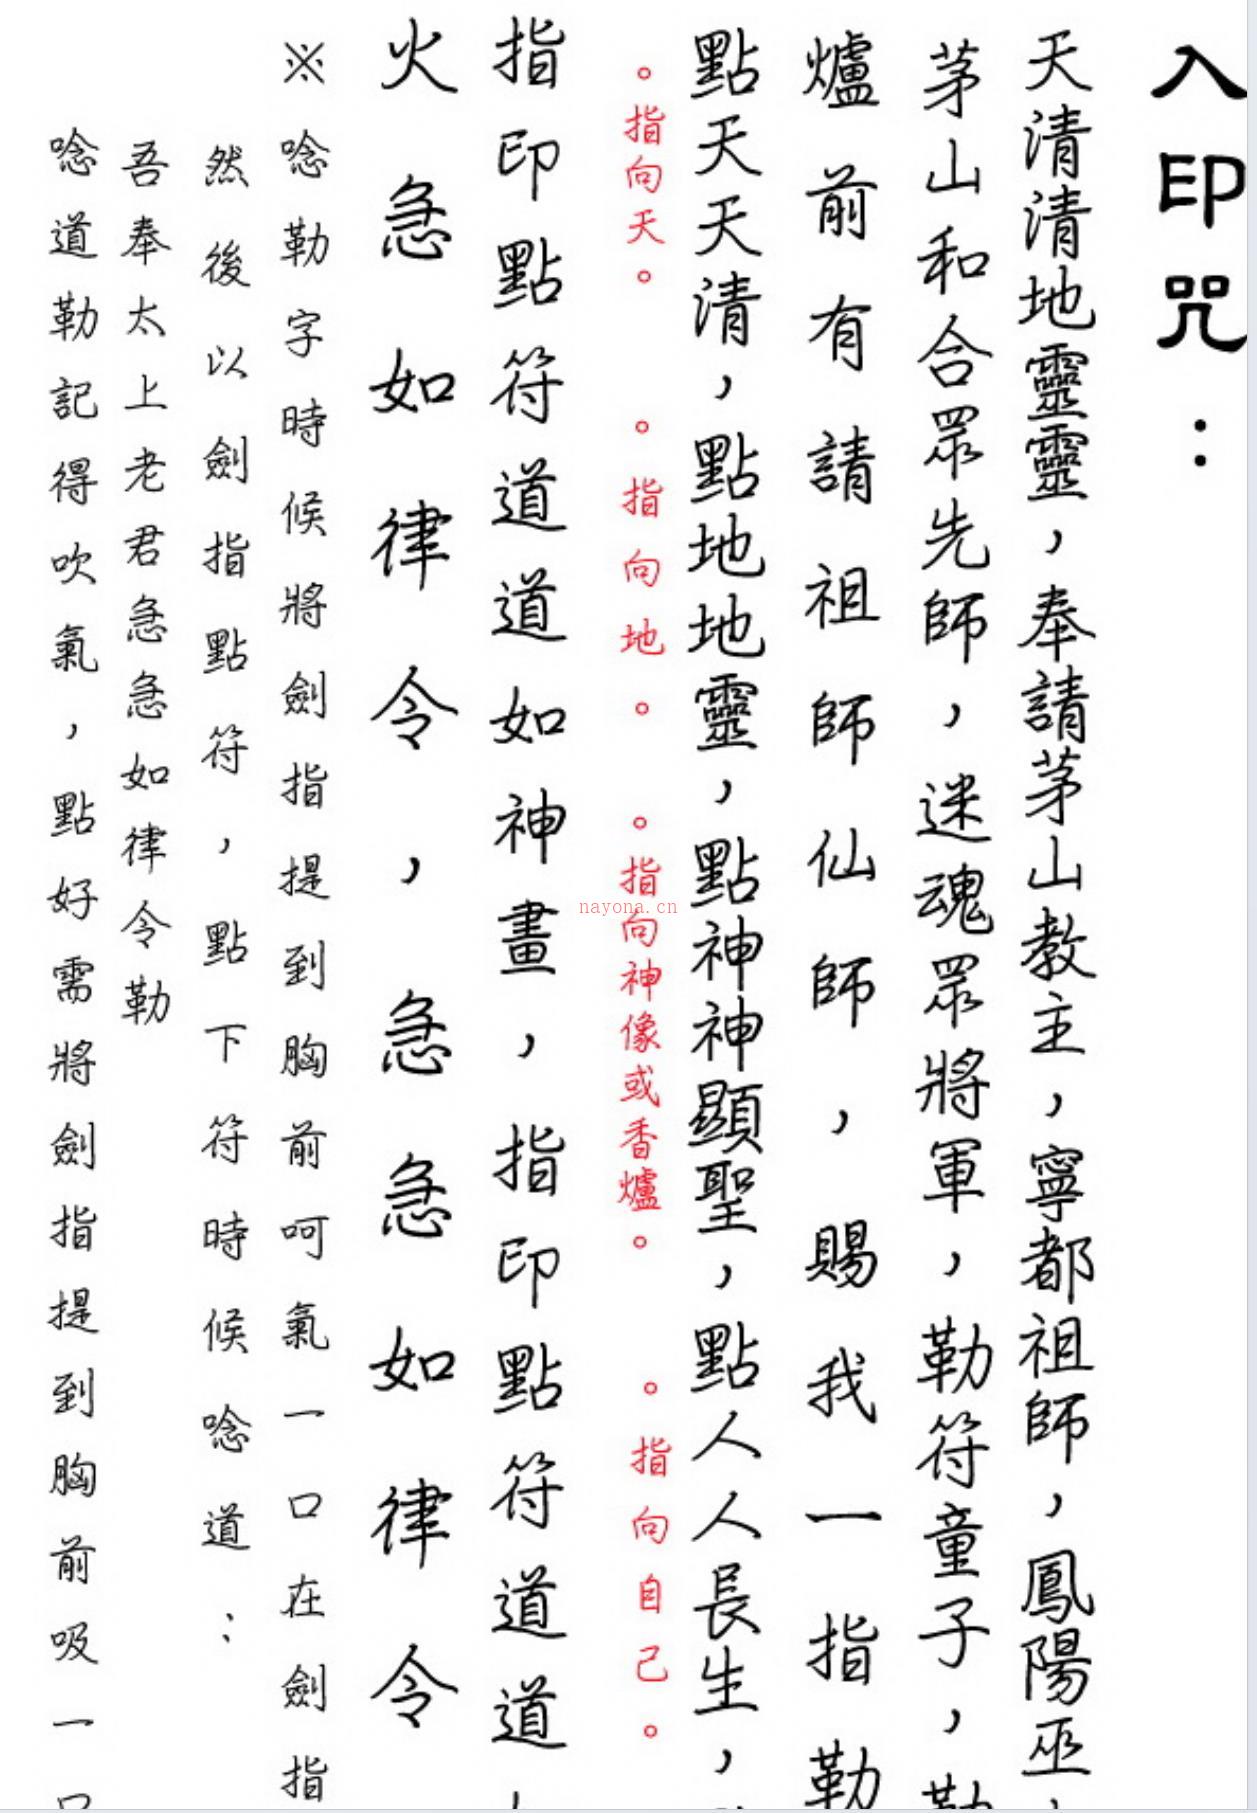 入印咒：
天清清地靈靈，奉請茅山教主，寧都祖師，鳳陽巫
茅山和合眾先師，迷魂眾將軍，勒符童子，勒
爐前有請祖師仙師，賜我一指勒
點天天清，點地地靈，點神神顯聖，點人人長生，
。指向天。
。指向地。
。指向神像或香爐。
。指向自己。
指印點符道道如神畫，指印點符道道
火急如律令，急急如律令
※唸勒字時候將劍指提到胸前呵氣一口在劍指
然後以劍指點符，點下符時候唸道：
吾奉太上老君急急如律令勒
唸道勒記得吹氣，點好需將劍指提到胸前吸一口
nayona.cn